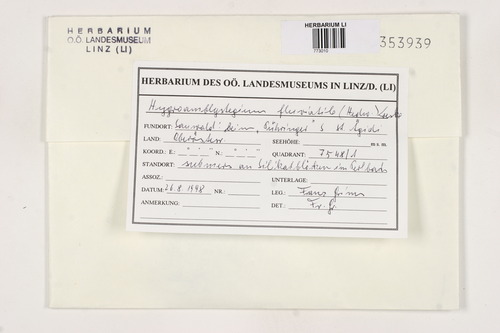 HERBARIUM
O.Ö. LANDESMUSEUM
LINZ (LI)
HERBARIUM LI
773010
353939
HERBARIUM DES OÖ. LANDESMUSEUMS IN LINZ/D. (LI)
Hygroamblystegium fluviatile (Hedw.) Loeske
FUNDORT: Sauwald: beim "Bühringer" S St. Ägidi
LAND: Oberösterr. SEEHÖHE: m s. m.
KOORD.: E: ° ' " N: ° ' " QUADRANT: 7548/1
STANDORT: submers an Silikatblöcken im
ASSOZ.: UNTERLAGE:
DATUM: 26.8.1998 NR.: LEG.: Franz Grims
ANMERKUNG: DET.: Fr. Gr.